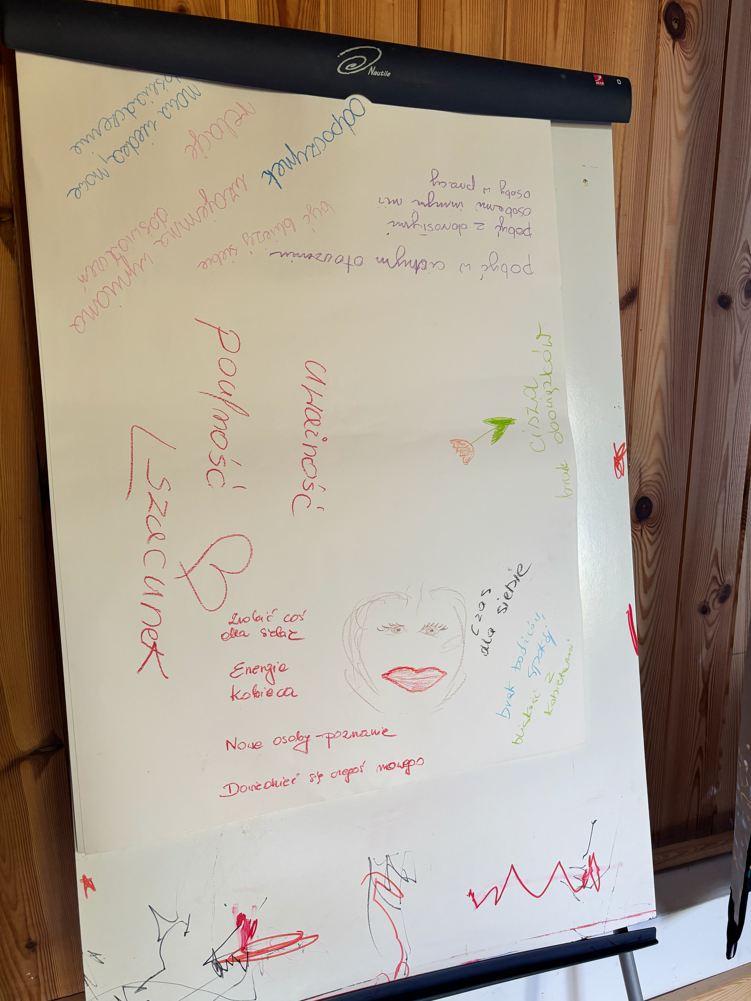 Nautile
nowa wiedza, nowe
doświadczenie
relacje
odpoczynek
wzajemna wymiana
doświadczeń
być bliżej siebie
pobyć w cichym otoczeniu
pobyć z dorosłymi
osobami innymi niż
osoby w pracy
uważność
poufność
szacunek
cisza
brak obowiązków
Zrobić coś
dla siebie
Energia
kobieca
Nowe osoby - poznanie
Dowiedzieć się czegoś nowego
czas
dla siebie
brak bodźców,
spokój
bliskość z
kobietami